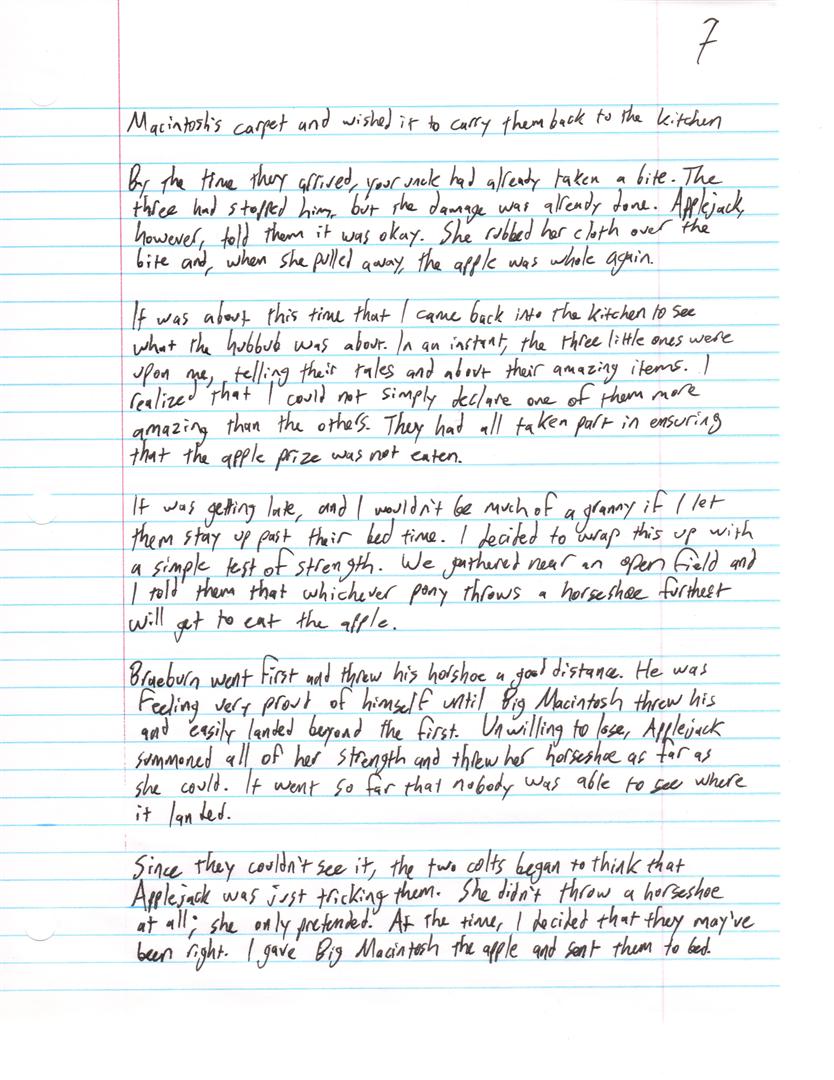 7
Macintosh's carpet and wished it to carry them back to the kitchen
By the time they arrived, your uncle had already taken a bite. The
three had stopped him, but the damage was already done. Applejack,
however, told them it was okay. She rubbed her cloth over the
bite and, when she pulled away, the apple was whole again.
It was about this time that I came back into the kitchen to see
what the hubbub was about. In an instant, the three little ones were
upon me, telling their tales and about their amazing items. I
realized that I could not simply declare one of them more
amazing than the others. They had all taken part in ensuring
that the apple prize was not eaten.
It was getting late, and I wouldn't be much of a granny if I let
them stay up past their bed time. I decided to wrap this up with
a simple test of strength. We gathered near an open field and
I told them that whichever pony throws a horseshoe furthest
will get to eat the apple.
Braeburn went first and threw his horshoe a good distance. He was
feeling very proud of himself until Big Macintosh threw his
and easily landed beyond the first. Unwilling to lose, Applejack
summoned all of her strength and threw her horseshoe as far as
she could. It went so far that nobody was able to see where
it landed.
Since they couldn't see it, the two colts began to think that
Applejack was just tricking them. She didn't throw a horseshoe
at all; she only pretended. At the time, I decided that they may've
been right. I gave Big Macintosh the apple and sent them to bed.